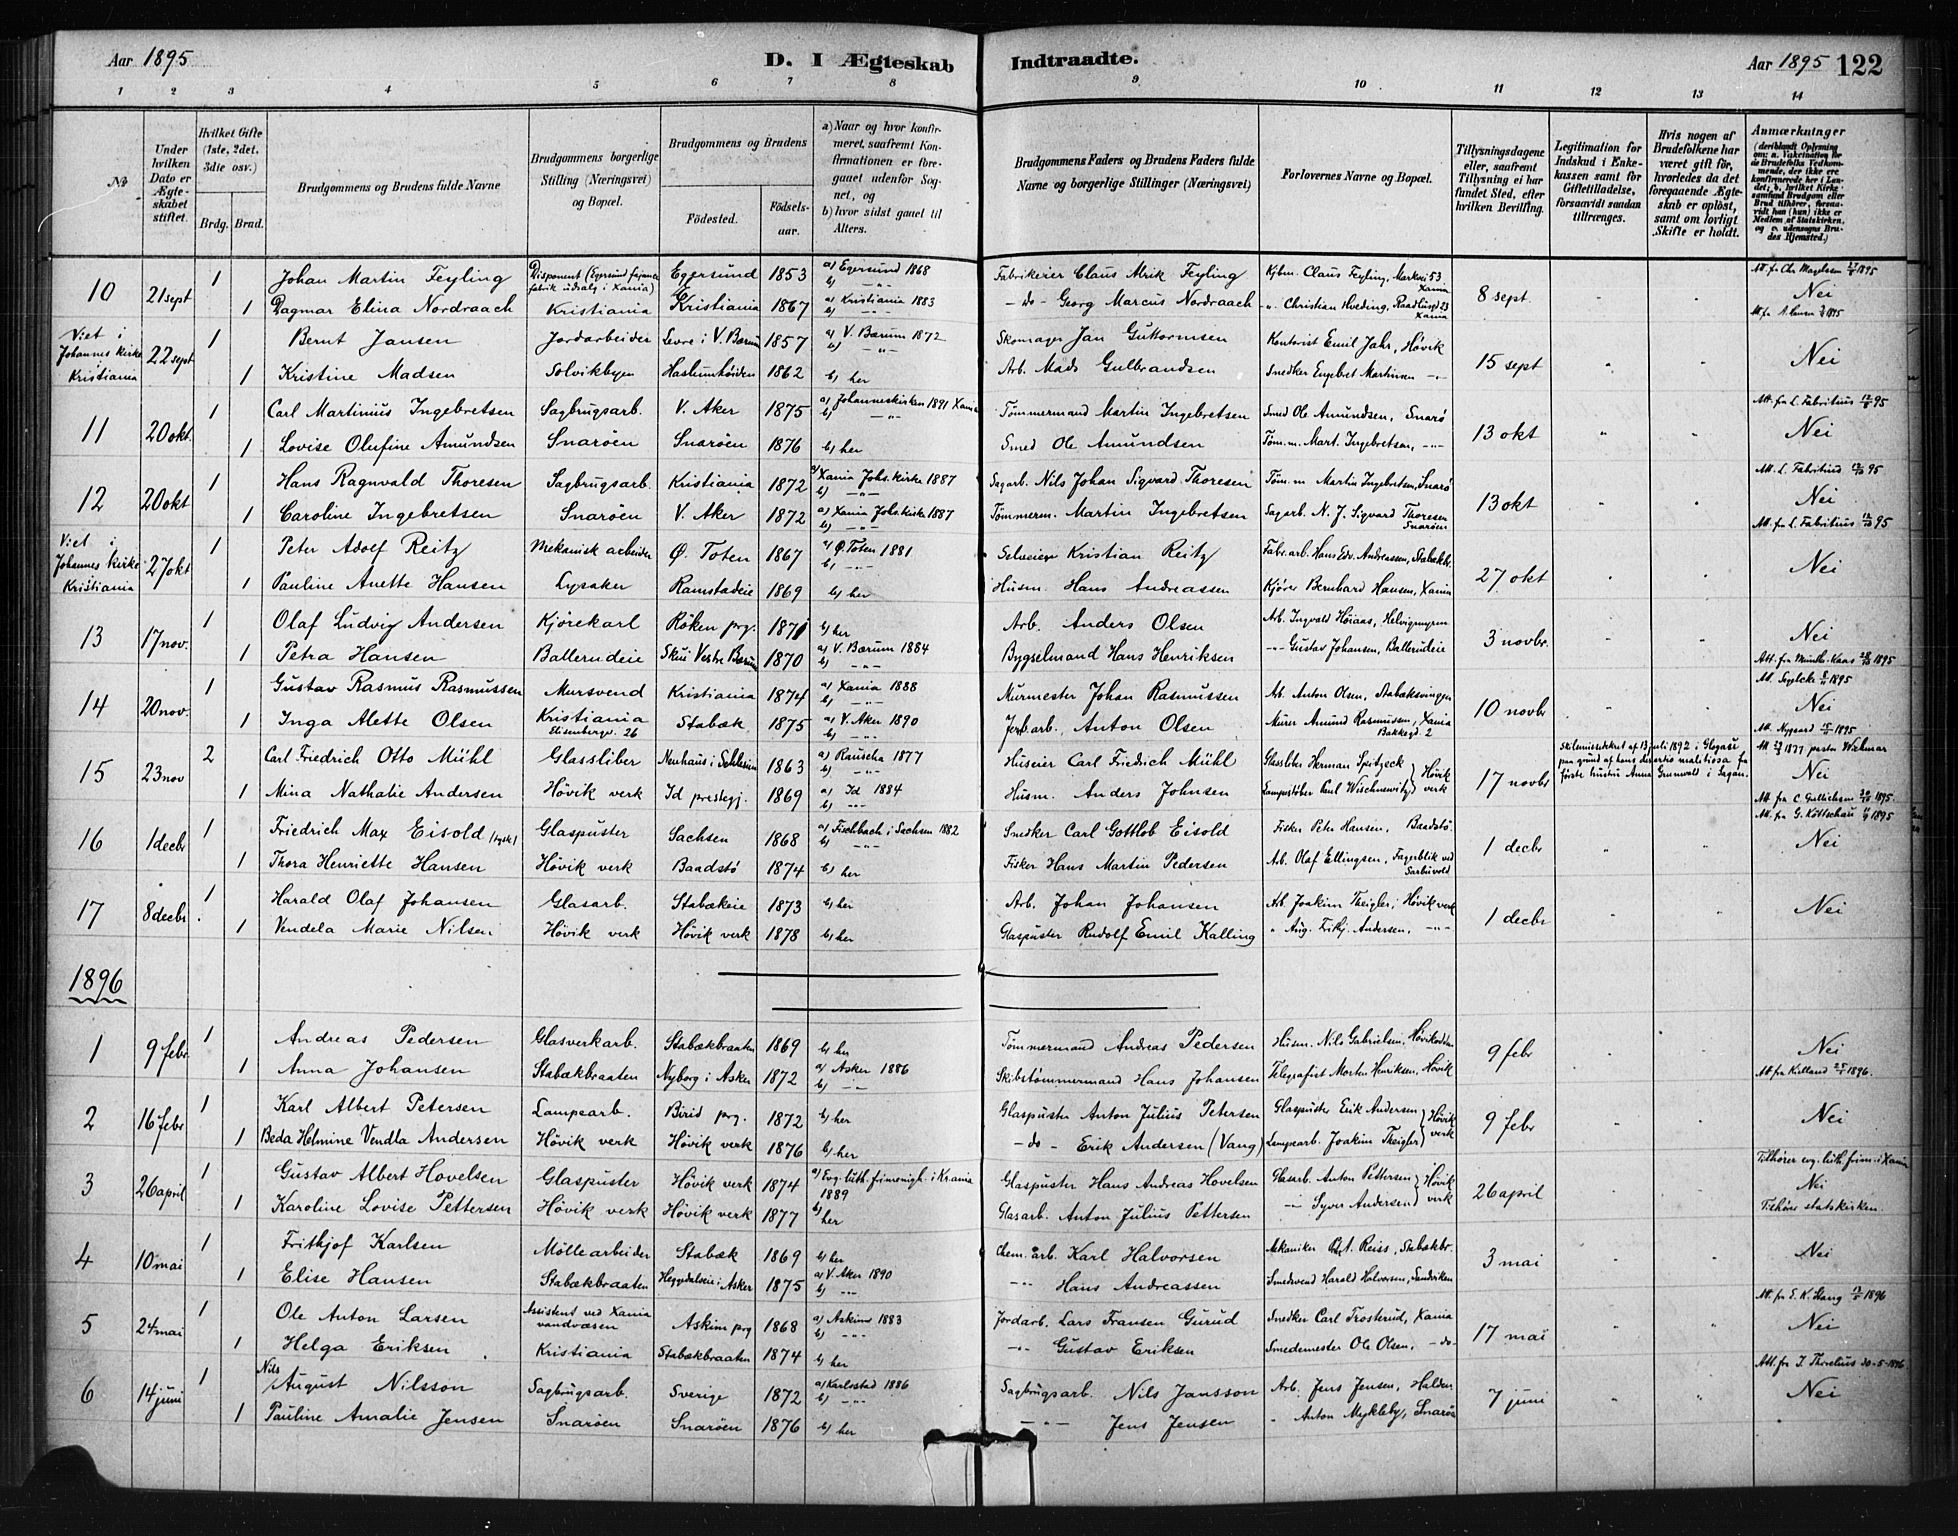 Aar 1895
D. I Ægteskab
Indtraadte.
Aar 1895
122
1 2 3 4 5 6 7 8
9 10 11 12 13 14
№
Under hvilken Dato er Ægteskabet stiftet.
Hvilket Gifte (1ste, 2det, 3die osv.)
Brdg. Brud.
Brudgommens og Brudens fulde Navne
Brudgommens borgerlige Stilling (Næringsvei) og Bopæl.
Brudgommens og Brudens
Fødested.
Fødselsaar.
a) Naar og hvor konfirmeret, saafremt Konfirmationen er foregaaet udenfor Sognet, og
b) hvor sidst gaaet til Alters.
Brudgommens Faders og Brudens Faders fulde Navne og borgerlige Stillinger (Næringsvei)
Forlovernes Navne og Bopæl.
Tillysningsdagene eller, saafremt Tillysning ei har fundet Sted, efter hvilken Bevilling.
Legitimation for Indskud i Enkekassen samt for Giftetilladelse, forsaavidt saadan tiltrænges.
Hvis nogen af Brudefolkene har været gift før, hvorledes da det foregaaende Ægteskab er opløst, samt om lovligt Skifte er holdt.
Anmærkninger
10 21 sept 1 Johan Martin Feyling Disponent (Egersund fajance fabrik udsalg i Xania) Egersund 1853 a) Egersund 1868 b) -"- Fabrikeier Claus Alrik Feyling Kjbm. Claus Feyling, Markvei 53 Xania 8 sept. Nei
1 Dagmar Elina Nordraach Kristiania Kristiania 1867 a) Kristiania 1883 b) -"- -do- Georg Marcus Nordraach -"- Christian Hveding, Raadhusgd 23 Xania
Viet i Johannes kirke Kristiania 22 sept 1 Bernt Jansen Jordarbeider Levre i V. Bærum 1857 a) V. Bærum 1872 b) -"- Skomager Jan Guttormsen Kontorist Emil Jahr, Høvik 15 sept Nei
1 Kristine Madsen Solvikbyen Haslumhøiden 1862 b) her Arb. Mads Gulbrandsen Snedker Engebret Martinsen -"-
11 20 okt. 1 Carl Martinius Ingebretsen Sagbrugsarb. V. Aker 1875 a) Johanneskirken 1891 Xania b) -"- Tømmermand Martin Ingebretsen Smed Ole Amundsen, Snarø 13 okt Nei
1 Lovise Olufine Amundsen Snarøen Snarøen 1876 b) her Smed Ole Amundsen Tøm.m. Mart. Ingebretsen, -"-
12 20 okt 1 Hans Ragnvald Thoresen Sagbrugsarb. Kristiania 1872 a) Xania Johs. kirke 1887 b) -"- Sagarb. Nils Johan Sigvard Thoresen Tøm.m Martin Ingebretsen, Snarø 13 okt Nei
1 Caroline Ingebretsen Snarøen V. Aker 1872 a) Xania Johs. kirke 1887 b) -"- Tømmerm. Martin Ingebretsen Sagarb. N. J. Sigvard Thoresen Snarøen
Viet i Johannes kirke Kristiania 27 okt 1 Peter Adolf Reitz Mekanisk arbeider Ø. Toten 1867 a) Ø. Toten 1881 b) -"- Selveier Kristian Reitz Fabr. arb. Hans Edv. Andreassen, Stabækbr. 27 okt Nei
1 Pauline Anette Hansen Lysaker Ramstadeie 1869 b) her Husm. Hans Andreassen Kjører Bernhard Hansen, Xania
13 17 nov. 1 Olaf Ludvig Andersen Kjørekarl Røken prg. 1871 b) her Arb. Anders Olsen Arb. Ingvald Høiaas, Helvigmyren 3 novbr. Nei
1 Petra Hansen Ballerudeie Skui Vestre Bærum 1870 a) V. Bærum 1884 b) -"- Bygselmand Hans Henriksen -"- Gustav Johansen, Ballerudeie
14 20 nov. 1 Gustav Rasmus Rasmussen Mursvend Kristiania 1874 a) Xania 1888 b) -"- Murmester Johan Rasmussen Arb. Anton Olsen, Stabæksvingen 10 novbr Nei
1 Inga Alette Olsen Kristiania Elisenbergv. 26 Stabæk 1875 a) V. Aker 1890 b) -"- Jerb.arb. Anton Olsen Murer Amund Rasmussen, Xania Bakkegd. 2
15 23 nov 2 Carl Friedrich Otto Mühl Glassliber Neuhaus i Schlesien 1863 a) Rauscha 1877 b) -"- Huseier Carl Friedrich Mühl Glassliber Herman Spitzeck Høvik verk 17 novbr Skilsmissedekret af 13 juli 1892 i Glogau paa grund af hans desertio malitiosa fra første hustru Anna Grunwald i Sagan. Nei
1 Mina Nathalie Andersen Høvik verk Id prestegj. 1869 a) Id 1884 b) -"- Husm. Anders Johnsen Lampestøber Paul Wischnewitz
16 1 decbr 1 Friedrich Max Eisold (tysk) Glaspuster Sachsen 1868 a) Fischbach i Sachsen 1882 b) -"- Snedker Carl Gottlob Eisold Fisker Peter Hansen, Baadstø 1 decbr Nei
1 Thora Henriette Hansen Høvik verk Baadstø 1874 b) her Fisker Hans Martin Pedersen Arb. Olaf Ellingsen, Fagerblik ved Sarbuvold
17 8 decbr. 1 Harald Olaf Johansen Glasarb. Stabækeie 1873 b) her Arb. Johan Johansen Arb. Joakim Theigler, Høvik verk 1 decbr Nei
1 Vendela Marie Nilsen Høvik verk Høvik verk 1878 b) her Glaspuster Rudolf Emil Kalling " Aug. Fritj. Andersen, -"-
1896
1 9 febr. 1 Andreas Pedersen Glasverkarb. Stabækbraaten 1869 b) her Tømmermand Andreas Pedersen Husm. Nils Gabrielsen, Høvikodden 9 febr Nei
1 Anna Johansen Stabækbraaten Nyborg i Asker 1872 a) Asker 1886 b) -"- Skibstømmermand Hans Johansen Telegrafist Morten Henriksen, Høvik
2 16 febr 1 Karl Albert Petersen Lampearb. Birid prg. 1872 b) her Glaspuster Anton Julius Petersen Glaspuster Erik Andersen Høvik verk 9 febr Nei
1 Beda Helmine Vendla Andersen Høvik verk Høvik verk 1876 b) her -do- Erik Andersen (Vang) Lampearb. Joakim Theigler
3 26 april 1 Gustav Albert Hovelsen Glaspuster Høvik verk 1874 a) Evg. luth. frimenigh. i Krania 1889 Glaspuster Hans Andreas Hovelsen Glasarb. Anton Pettersen Høvik verk 26 april Tilhører evg. luth. frim. i Xania Nei
1 Karoline Lovise Pettersen Høvik verk Høvik verk 1877 b) her Glasarb. Anton Julius Pettersen -"- Syver Andersen Tilhører statskirken.
4 10 mai 1 Frithjof Karlsen Møllearbeider Stabæk 1869 b) her Chem. arb. Karl Halvorsen Mekaniker Reiss, Stabækbr. 3 mai Nei
1 Elise Hansen Stabækbraaten Heggedalseie i Asker 1875 a) V. Aker 1890 b) -"- -"- Hans Andreassen Smedsvend Harald Halvorsen, Sandviken
5 24 mai 1 Ole Anton Larsen Assistent ved Xania vandvæsen Askim prg 1868 a) Askim 1883 b) -"- Jordarb. Lars Fransen Gurud Snedker Carl Trosterud, Xania 17 mai Nei
1 Helga Eriksen Kristiania Stabækbraaten 1874 b) her -"- Gustav Eriksen Smedemester Ole Olsen, -do-
6 14 juni 1 Nils August Nilsson Sagbrugsarb. Sverige 1872 a) Karlsstad 1886 b) -"- Sagbrugsarb. Nils Jansson Arb. Jens Jensen, Halden 7 juni Att. fr. J. Thorelius 30-5-1896 Nei
1 Pauline Amalie Jensen Snarøen Snarøen 1876 b) her -"- Jens Jensen " Anton Myckleby, Snarøen